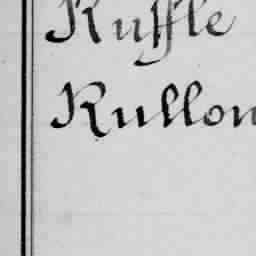 Ruffle
Rullon